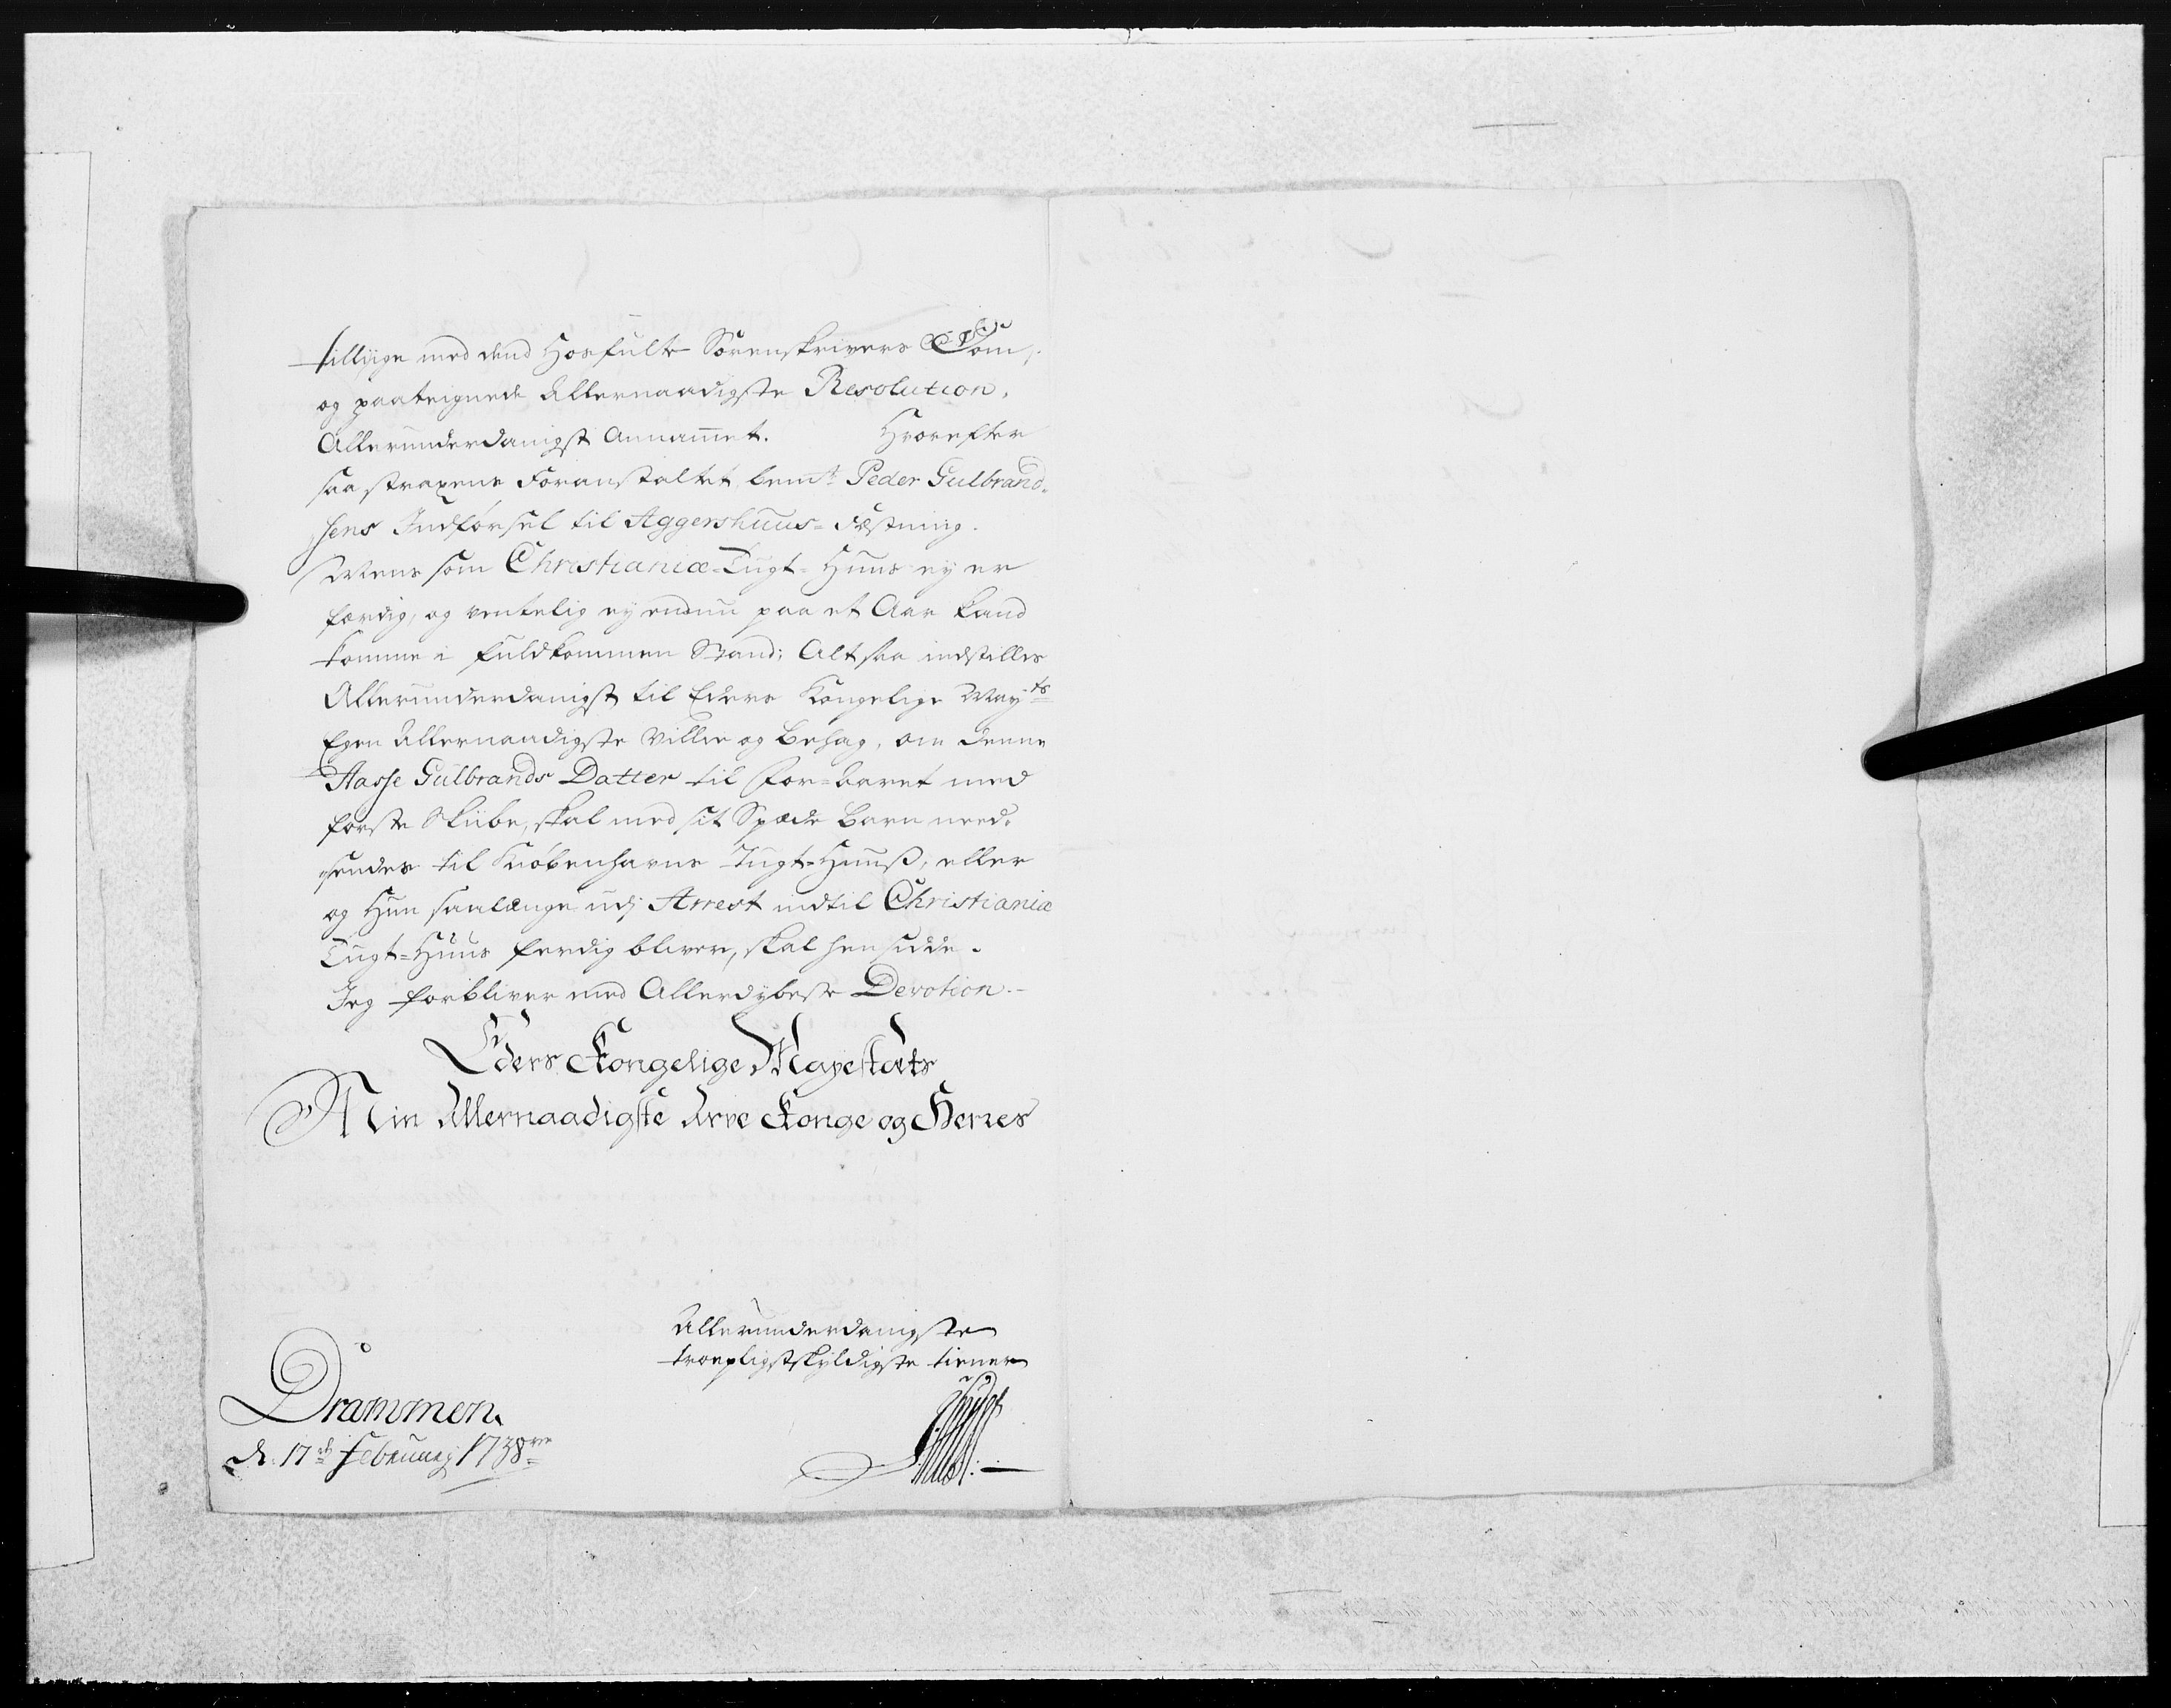 tilliige med dend Hosfulte Sorenskrivers Dom,
og paateignede Allernaadigste Resolution,
Allerunderdanigst Annammet. Hvorefter
saa straxens Foranstaltet bemte Peder Gulbrand-
sens Indførsel til Aggershuus-Fæstning.
Mens som Christianiæ-Tugt-Huus ey er
færdig, og ventelig ey endnu paa et Aar kand
komme i fuldkommen Stand; Alt saa indstilles
Allerunderdanigst til Eders Kongelige Mayts
Egen Allernaadigste Villie og Behag, om denne
Aasse Gulbrands Datter til For-aaret med
første Skiibe, skal med sit Spæde Barn need-
sendes til Kiøbenhavns Tugt-Huuß, eller
og Hun saalænge udj Arrest indtil Christianiæ
Tugt-Huus ferdig bliver, skal hensidde.
Jeg forbliver med Allerdybeste Devotion.-
Eders Kongelige Mayestæts
Min Allernaadigste Arve Konge og Herres
Allerunderdanigste
troepligstskyldigste tiener
Drammen.
d. 17de Februarj 1738